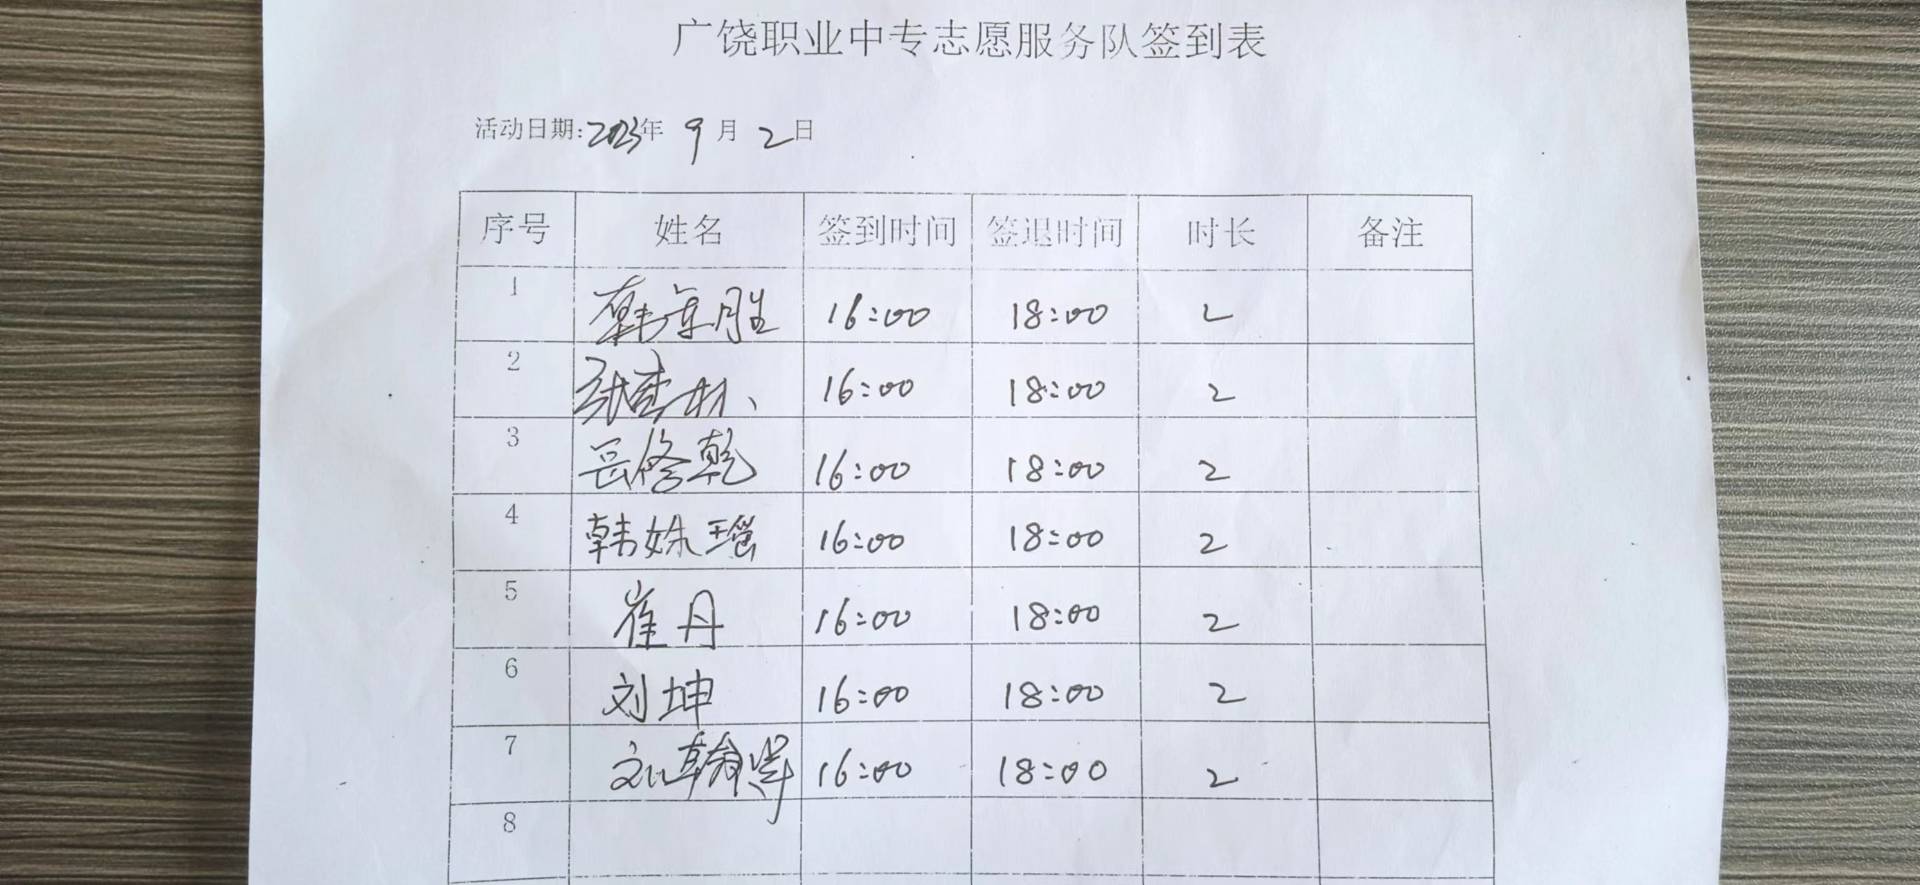 广饶职业中专志愿服务队签到表
活动日期:2023年 9月 2日
序号 姓名 签到时间 签退时间 时长 备注
1 韩 胜 16:00 18:00 2
2 张 林 16:00 18:00 2
3 岳修乾 16:00 18:00 2
4 韩姝瑶 16:00 18:00 2
5 崔丹 16:00 18:00 2
6 刘坤 16:00 18:00 2
7 刘翰 16:00 18:00 2
8